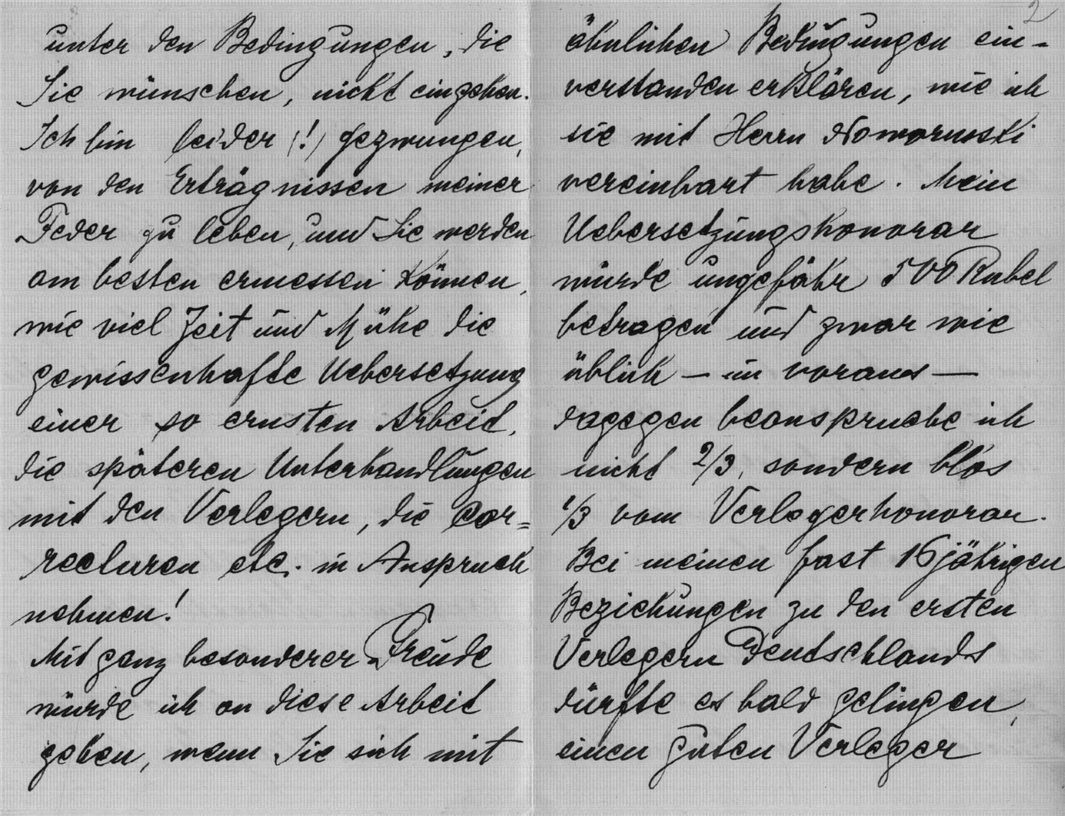 unter den Bedingungen, die
Sie wünschen, nicht eingehen.
Ich bin leider (!) gezwungen,
von den Erträgnissen meiner
Feder zu leben, und Sie werden
am besten ermessen können,
wie viel Zeit und Mühe die
gewissenhafte Uebersetzung
einer so ernsten Arbeit,
die späteren Unterhandlungen
mit den Verlegern, die Cor=
recturen etc. in Anspruch
nehmen!
Mit ganz besonderer Freude
würde ich an diese Arbeit
gehen, wenn Sie sich mit
2
ähnlichen Bedingungen ein-
verstanden erklären, wie ich
sie mit Herrn Nowormski
vereinbart habe. Mein
Uebersetzungshonorar
würde ungefähr 500 Rubel
betragen und zwar wie
üblich — im voraus —
dagegen beanspruche ich
nicht 2/3, sondern blos
1/3 vom Verlegerhonorar.
Bei meinen fast 16jährigen
Beziehungen zu den ersten
Verlegern Deutschlands
dürfte es bald gelingen,
einen guten Verleger